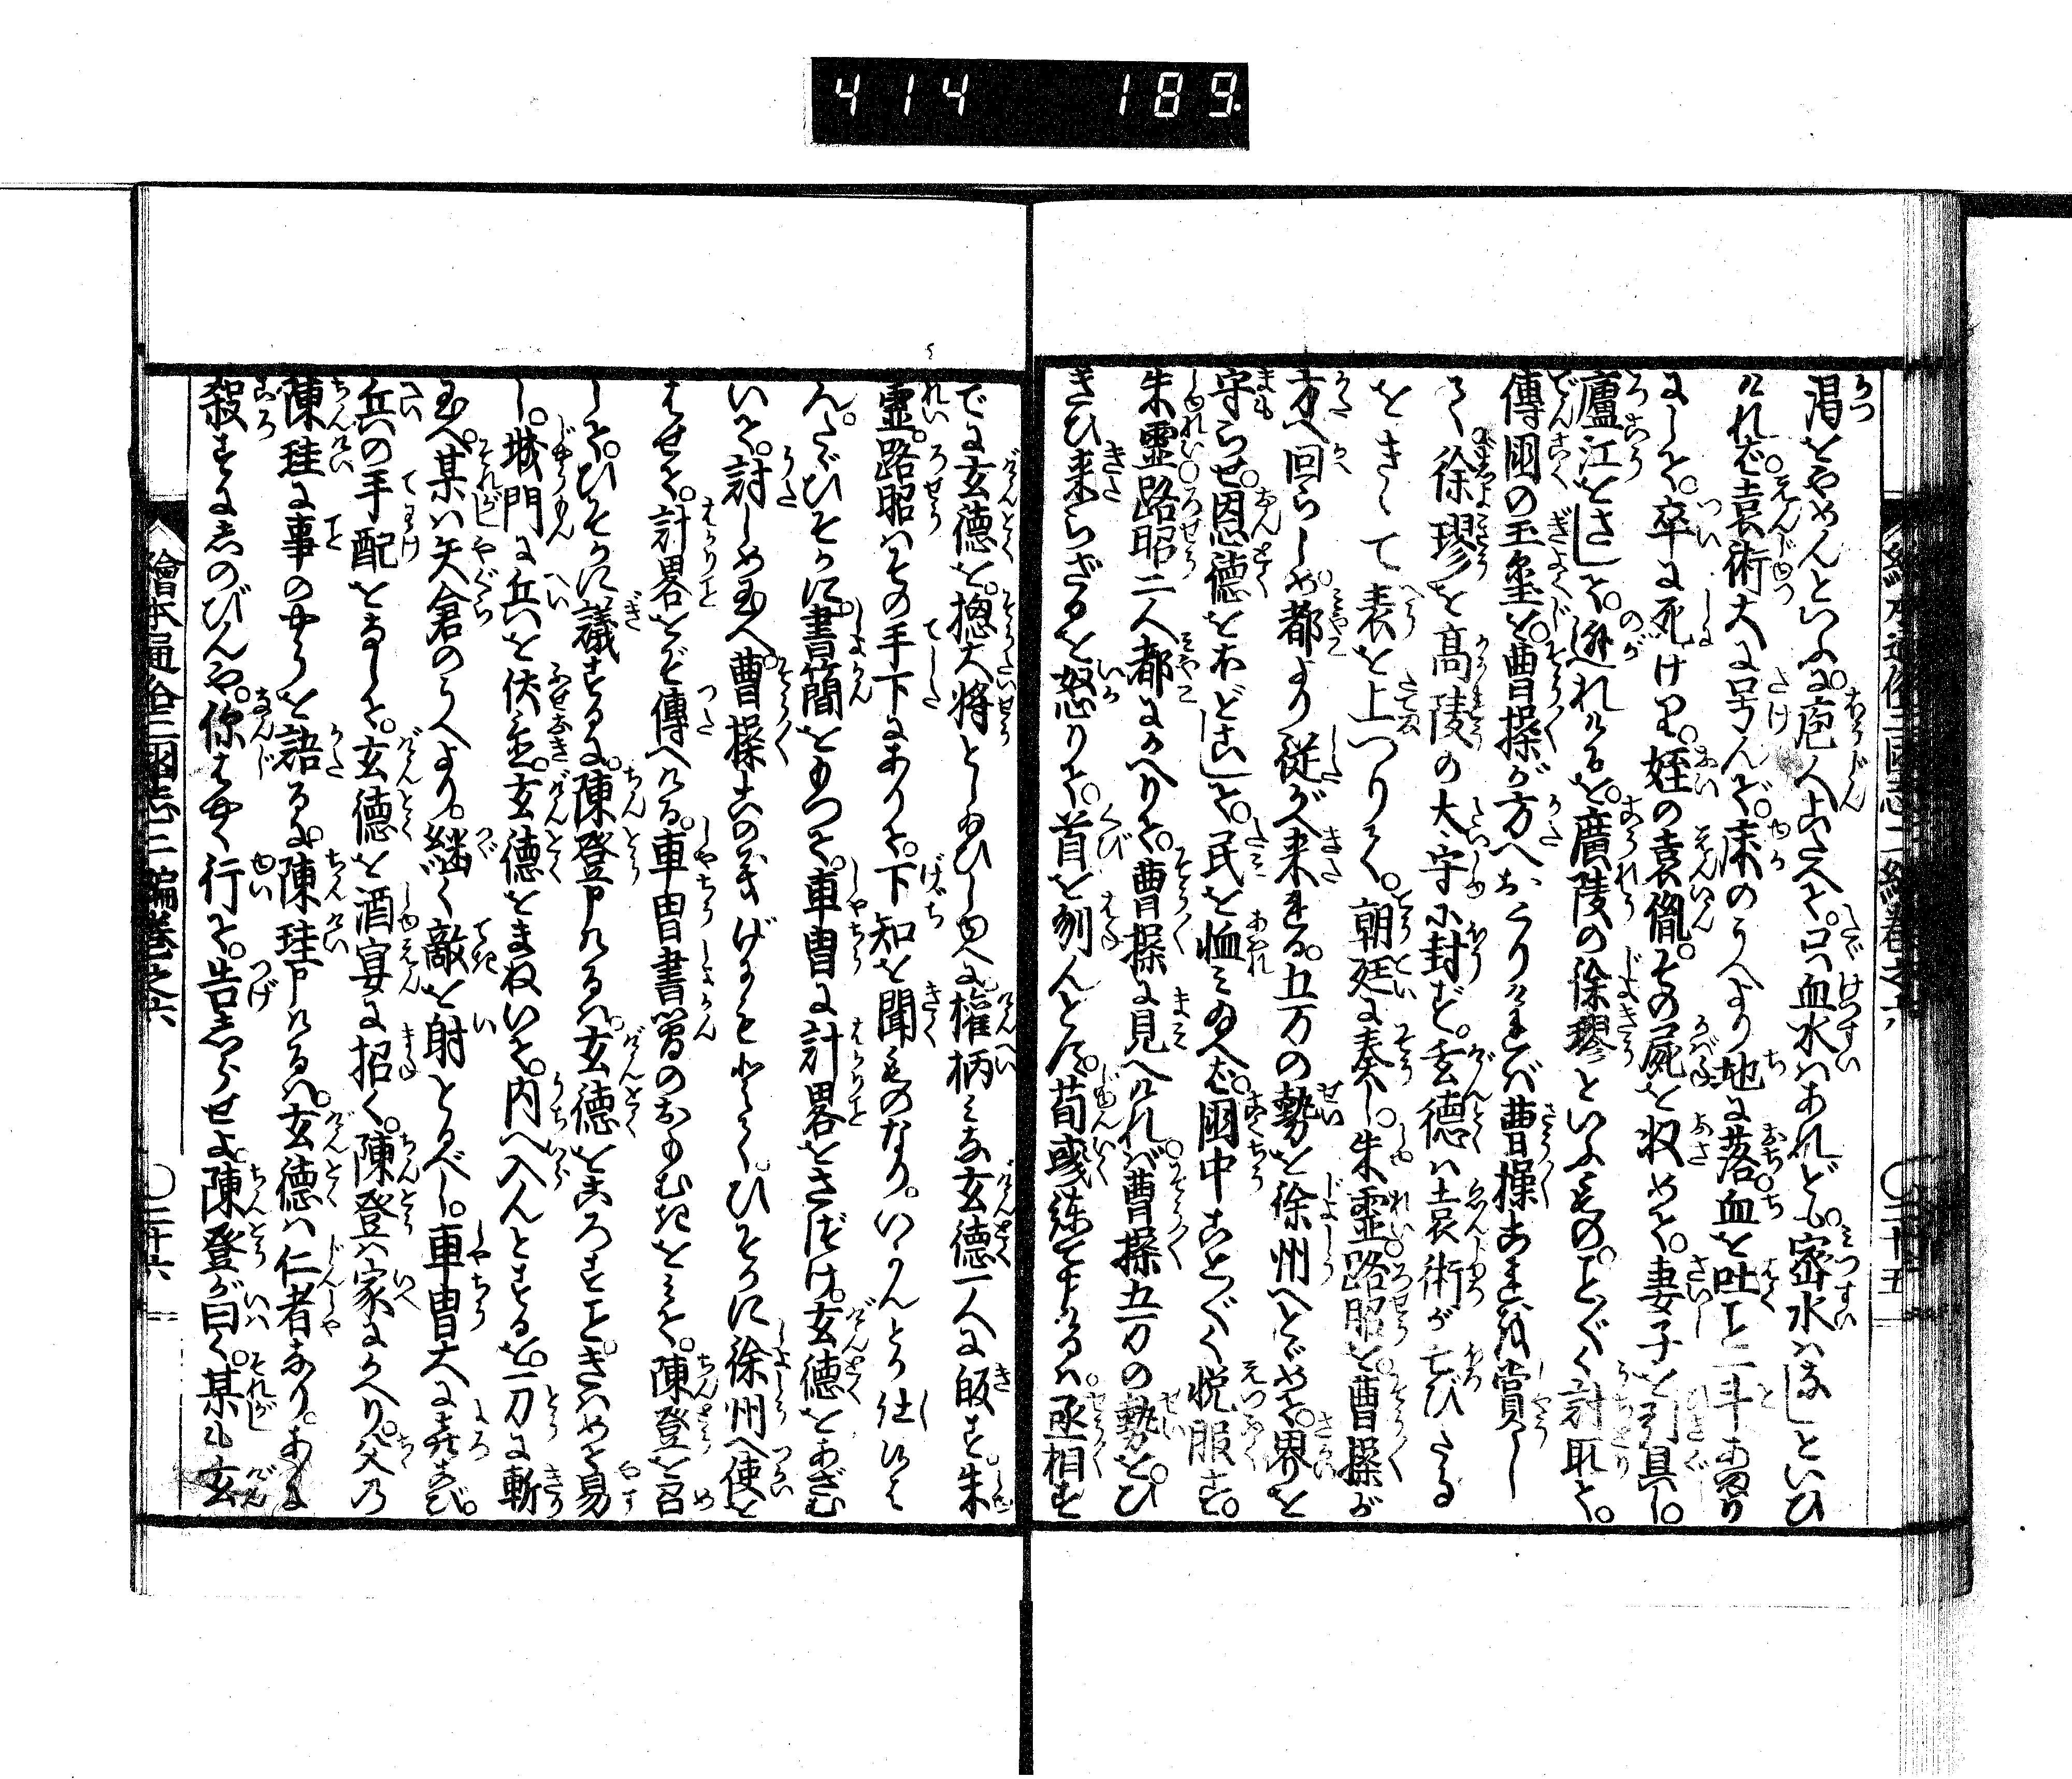 414 189
繪本通俗三國志二編卷之六 〇二十五
渇をやめんといふに庖人こたへて。只血水ハあれども。密水ハなしといひ
けれバ。袁術大に呌んで。床のうへより地に落。血を吐こと一斗あまり
にして。卒に死けり。姪の袁胤。その屍を収めて。妻子を引具し。
廬江をさして。遁れけるを。廣陵の徐璆といふもの。ことごとく討取て。
傳國の玉璽を。曹操が方へおくりけれバ曹操おほきに賞し
て。徐璆を高陵の大守に封ず。玄德ハ袁術が亡びたる
をきゝて表を上つりて。朝廷に奏し。朱靈路昭を。曹操が
方へ回らしめ。都より従がへ来れる。五万の勢を徐州へとゞめて。界を
守らせ。恩德をほどこして。民を恤ミ給へバ。國中ことごとく悦服す。
朱靈路昭二人都にかへりて。曹操に見へけれバ。曹操五万の勢を。ひ
きひ来らざるを怒りて。首を刎んとす。荀彧諫て申けるハ。丞相す
でに玄德を。捴大将としたまひしゆへに。權柄ミな玄德一人に皈す。朱
靈。路昭ハその手下にありて。下知を聞ものなり。いかんとか仕けん
ん。たゞひそかに。書簡をもつて。車冑に計畧をさづけ。玄德をあざむ
いて。討しめ玉へ。曹操この義げにもとて。ひそかに徐州へ使を
はせて。計畧をぞ傳へける。車冑書簡のおもむきをミて。陳登を召
して。ひそかに議するに。陳登申けるハ。玄德をころすこと。きハめて易
し。城門に兵を伏置。玄德をまねいて。内へ入んとするを。一刀に斬
玉へ。某ハ矢倉のうへより。継く敵を射とるべし。車冑大に喜び。
兵の手配をなして。玄德を酒宴に招く。陳登ハ家にかへり。父の
陳珪に事のやうを語るに。陳珪申けるハ。玄德ハ仁者なり。あに
殺すにしのびんや。你はやく行て。告しらせよ。陳登が曰く。某も玄
繪本通俗三國志二編卷之六 〇二十六